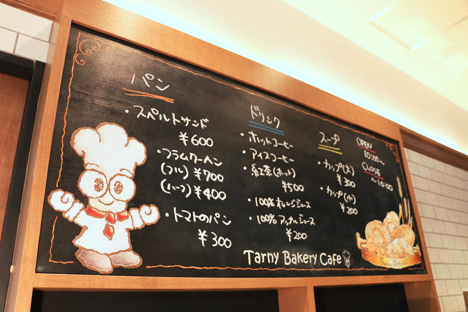 パン
・スペルトサンド
￥600
・フラムクーヘン
(フル) ￥700
(ハーフ) ￥400
・トマトのパン
￥300
ドリンク
・ホットコーヒー
・アイスコーヒー
・紅茶(ホット)
￥500
・100%オレンジジュース
・100%アップルジュース
￥200
スープ
・カップ(大)
￥300
・カップ(小)
￥200
OPEN
10:00~
CLOSE
~16:00
Tarny Bakery Cafe